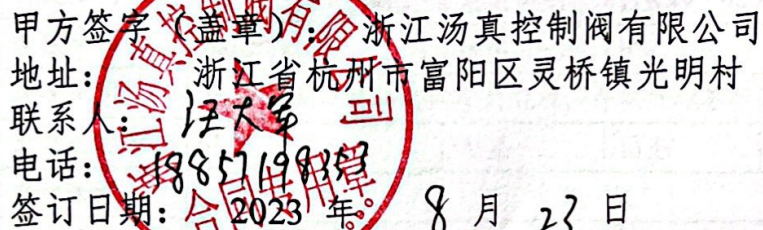 甲方签字（盖章）：浙江汤真控制阀有限公司
地址：浙江省杭州市富阳区灵桥镇光明村
联系人：汪大军
电话：18857198353
签订日期：2023 年 8 月 23 日
浙江汤真控制阀有限公司
合同专用章